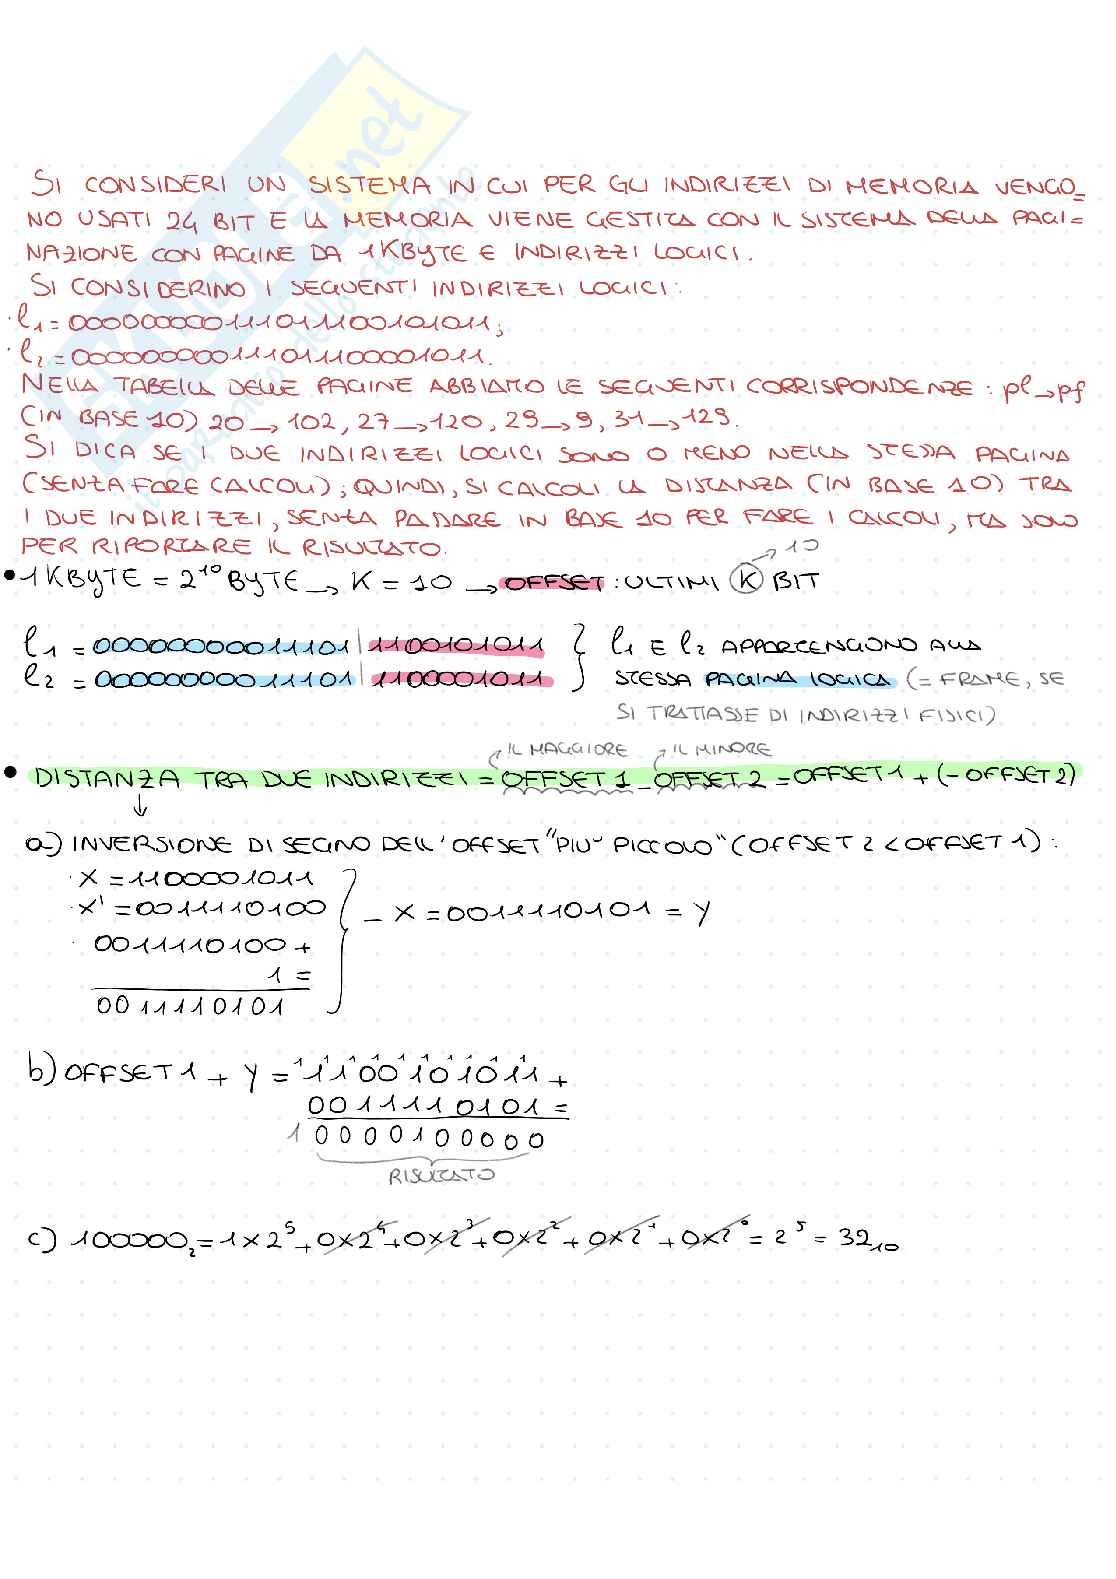 SI CONSIDERI UN SISTEMA IN CUI PER GLI INDIRIZZI DI MEMORIA VENGO=
NO USATI 24 BIT E LA MEMORIA VIENE GESTITA CON IL SISTEMA DELLA PAGI=
NAZIONE CON PAGINE DA 1KBYTE E INDIRIZZI LOGICI.
SI CONSIDERINO I SEGUENTI INDIRIZZI LOGICI:
·l₁=000000000111011100101011;
·l₂=000000000111011100001011.
NELLA TABELLA DELLE PAGINE ABBIAMO LE SEGUENTI CORRISPONDENZE: pl→pf
(IN BASE 10) 20→102, 27→120, 29→9, 31→129.
SI DICA SE I DUE INDIRIZZI LOGICI SONO O MENO NELLA STESSA PAGINA
(SENZA FARE CALCOLI); QUINDI, SI CALCOLI LA DISTANZA (IN BASE 10) TRA
I DUE INDIRIZZI, SENZA PASSARE IN BASE 10 PER FARE I CALCOLI, MA SOLO
PER RIPORTARE IL RISULTATO.
10
• 1KBYTE = 2¹⁰ BYTE → K = 10 → OFFSET: ULTIMI K BIT
l₁ = 00000000011101|1100101011 } l₁ E l₂ APPARTENGONO ALLA
l₂ = 00000000011101|1100001011 } STESSA PAGINA LOGICA (= FRAME, SE
SI TRATTASSE DI INDIRIZZI FISICI)
IL MAGGIORE IL MINORE
• DISTANZA TRA DUE INDIRIZZI = OFFSET 1 - OFFSET 2 = OFFSET 1 + (-OFFSET 2)
↓
a) INVERSIONE DI SEGNO DELL'OFFSET "PIU' PICCOLO" (OFFSET 2 < OFFSET 1):
· X = 1100001011
· X' = 0011110100 } - X = 0011110101 = Y
· 0011110100 +
1 =
0011110101
b) OFFSET 1 + Y = 1100101011 +
0011110101 =
1 0000100000
RISULTATO
c) 100000₂ = 1 x 2⁵ + 0x2⁴ + 0x2³ + 0x2² + 0x2¹ + 0x2⁰ = 2⁵ = 32₁₀